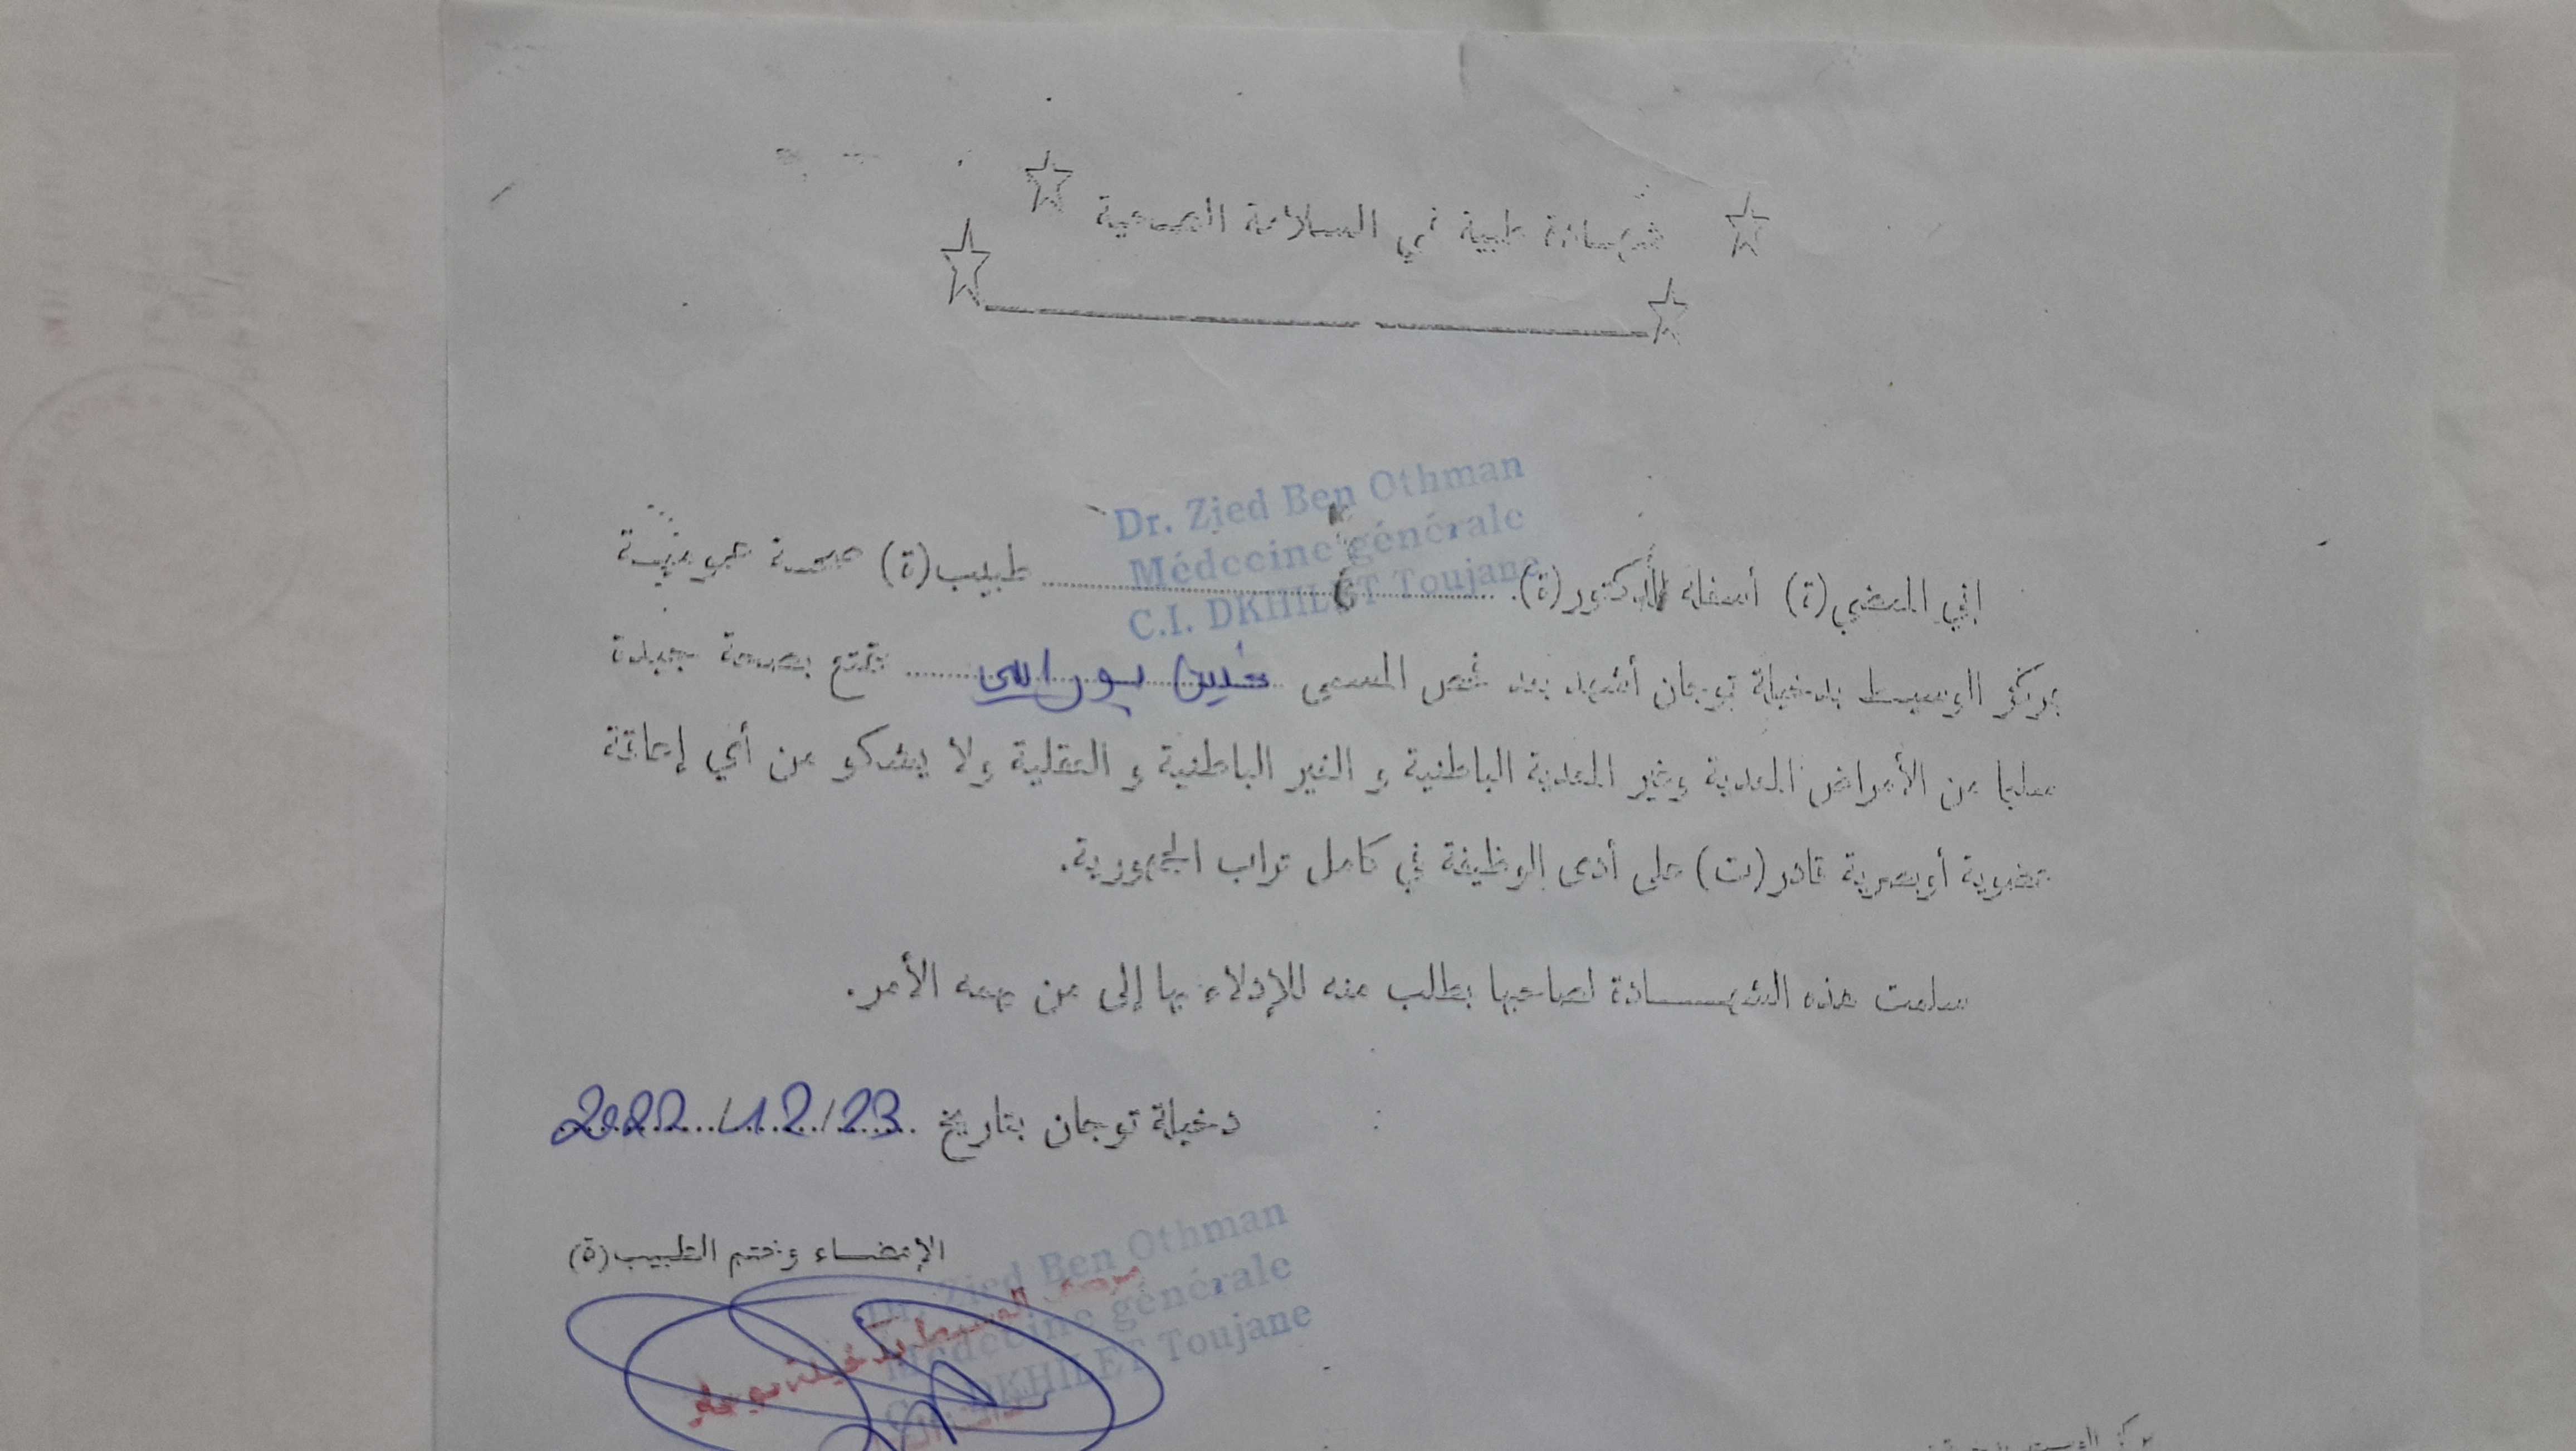 شهادة طبية في السلامة الصحية
Dr. Zied Ben Othman
Médecine générale
C.I. DKHILET Toujane
إني الممضي(ة) أسفله الدكتور(ة) طبيب(ة) صحة عمومية
بمركز الوسيط بدخيلة توجان أشهد بعد فحص المسمى يتمتع بصحة جيدة
سليما من الأمراض المعدية وغير المعدية الباطنية و الغير الباطنية و العقلية ولا يشكو من أي إعاقة
عضوية أوبصرية قادر(ت) على أدى الوظيفة في كامل تراب الجمهورية.
سلمت هذه الشهادة لصاحبها بطلب منه للإدلاء بها إلى من يهمه الأمر.
دخيلة توجان بتاريخ 23/12/2022
الإمضاء وختم الطبيب(ة)
Dr. Zied Ben Othman
Médecine générale
C.I. DKHILET Toujane